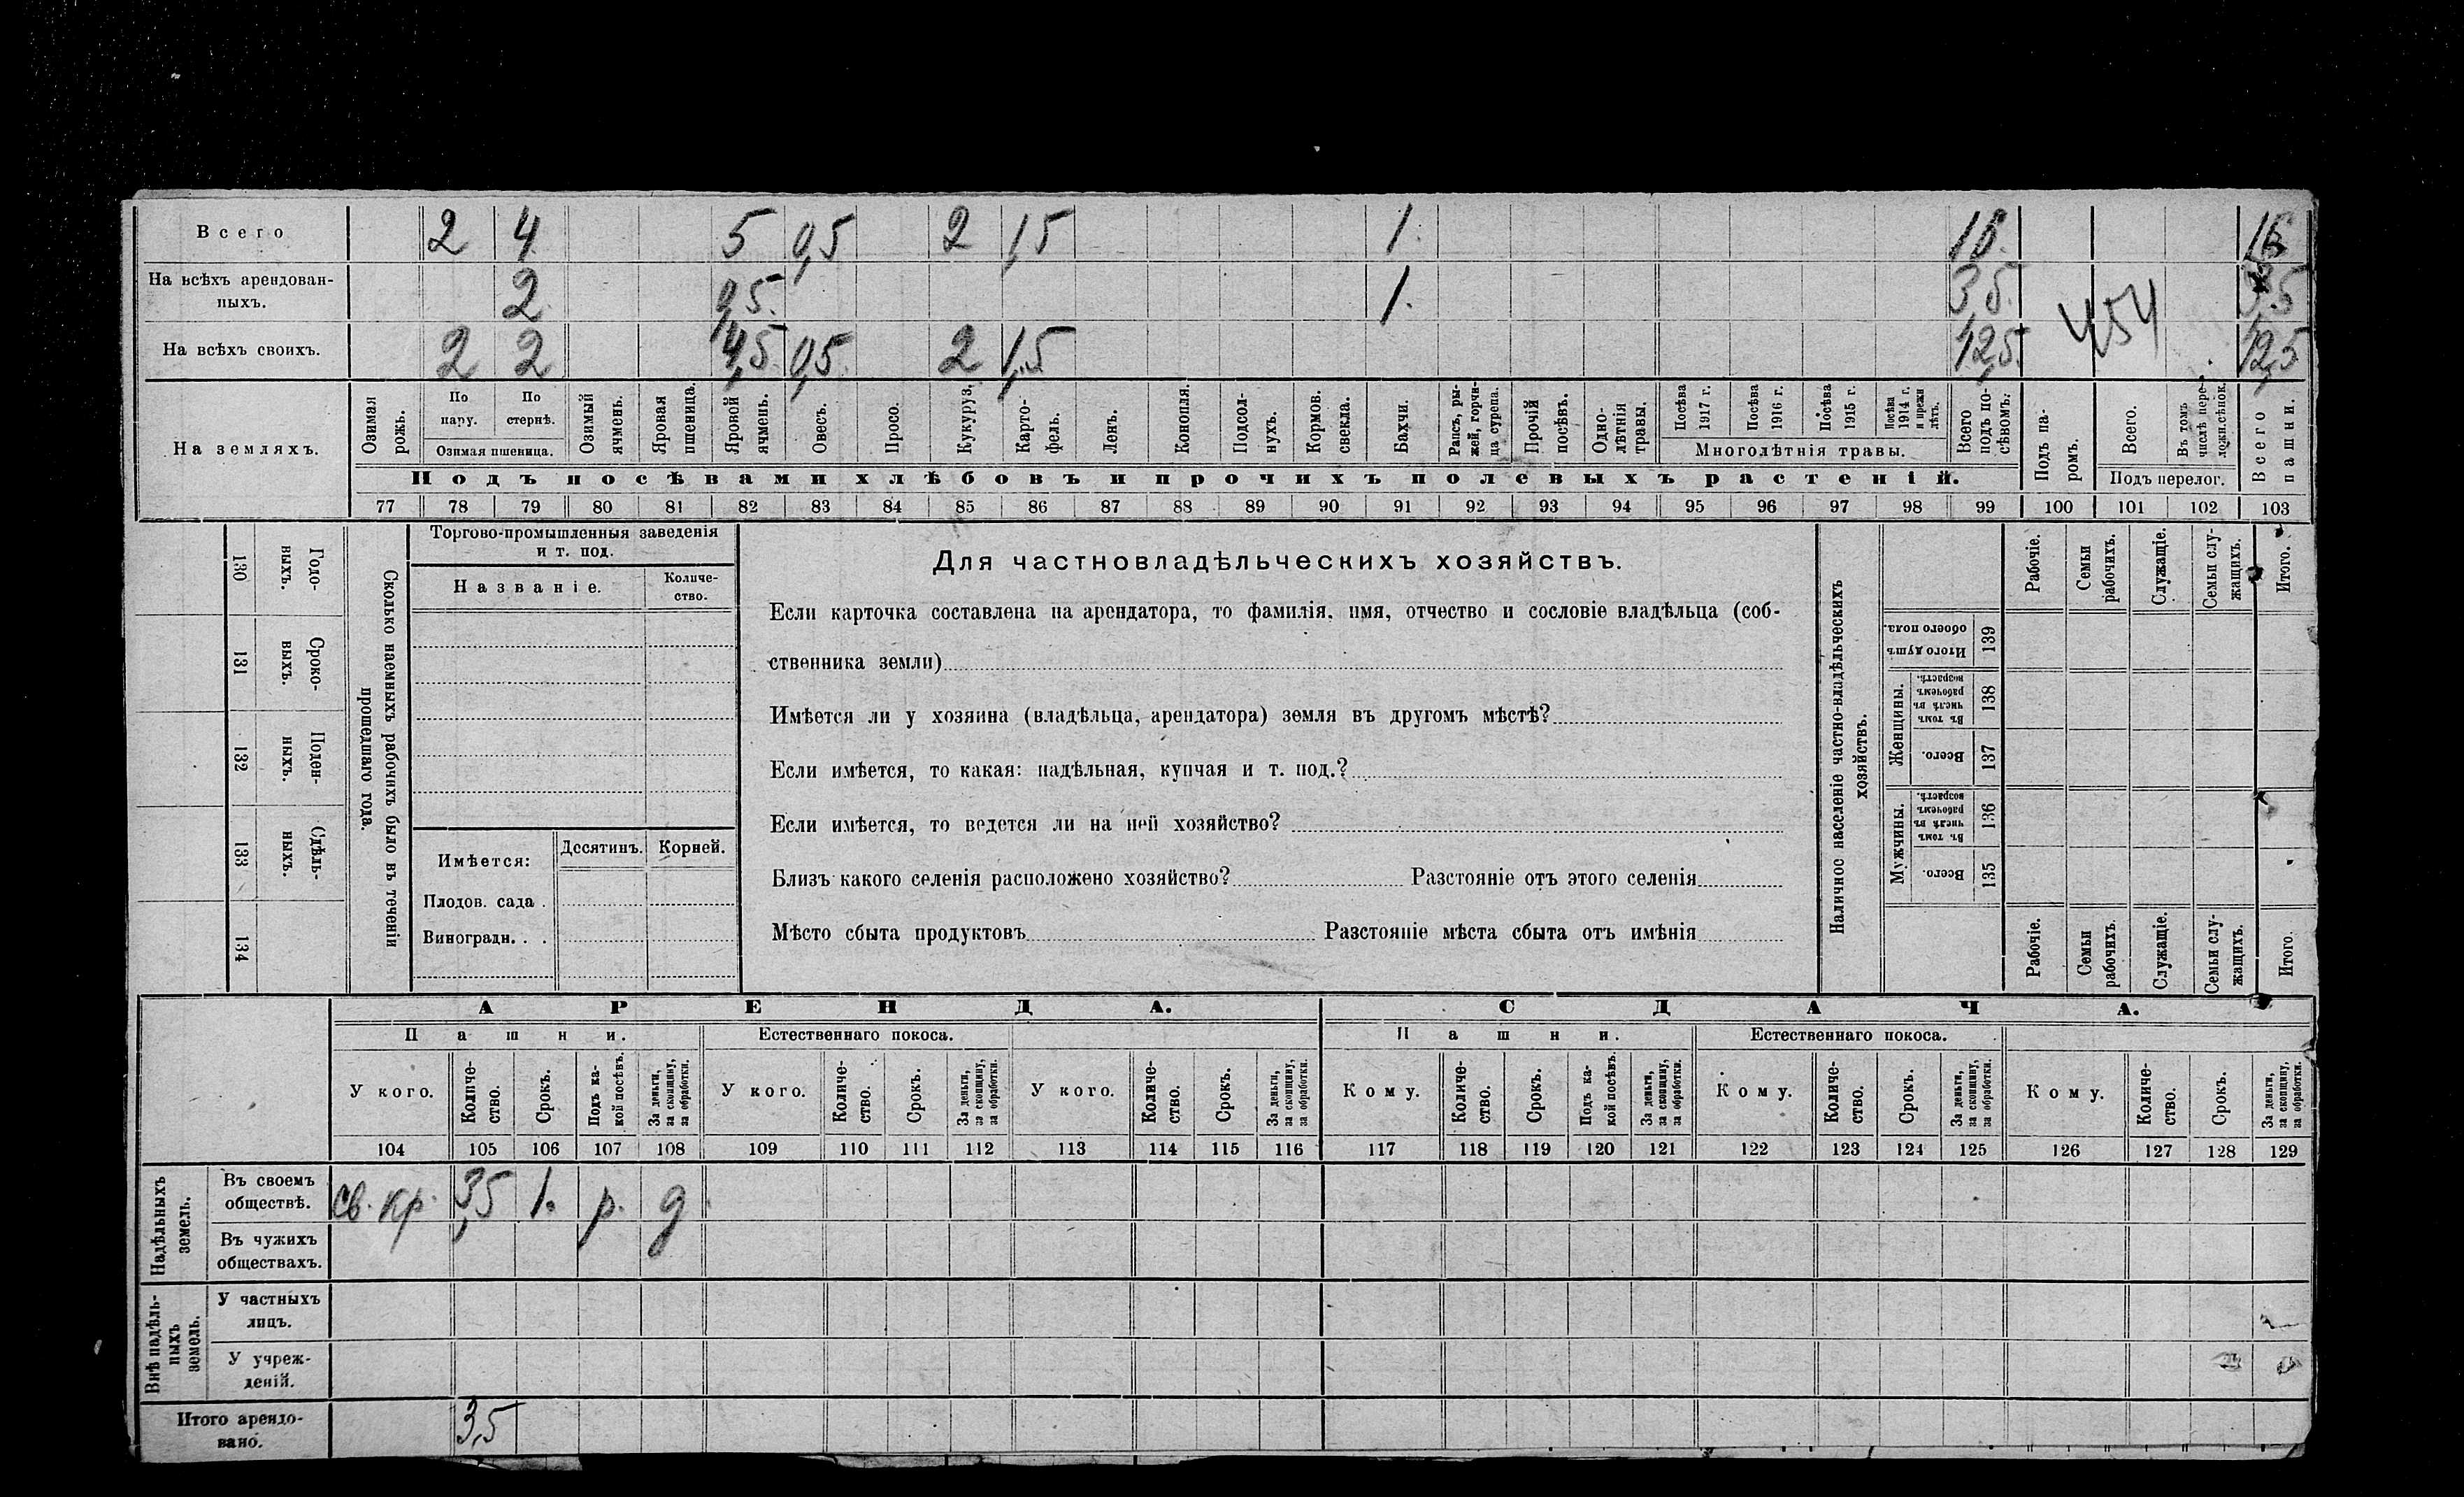 Всего 2 4 5 0,5 2 1,5 1. 16. 16
На всѣхъ арендован-
ныхъ. 2 0,5. 1. 3,5. 3,5
На всѣхъ своихъ. 2 2 4,5 0,5. 2 1,5 12,5. 12,5
454
На земляхъ.
Озимая рожь.
По пару.
По стернѣ.
Озимая пшеница.
Озимый ячмень.
Яровая пшеница.
Яровой ячмень.
Овесъ.
Просо.
Кукуруз.
Карто-
фель.
Ленъ.
Конопля.
Подсол-
нухъ.
Кормов. свекла.
Бахчи.
Рапсъ, ры-
жей, горчи-
ца сурепа.
Прочій посѣвъ.
Одно-
лѣтнія травы.
Посѣва 1917 г.
Посѣва 1916 г.
Посѣва 1915 г.
Посѣва 1914 г. и прежн лѣтъ.
Многолѣтнія травы.
Всего подъ по-
сѣвомъ.
Подъ па-
ромъ.
Всего.
Въ томъ числѣ пере-
ложн.сѣнок.
Подъ перелог.
Всего пашни.
Подъ посѣвами хлѣбовъ и прочихъ полевыхъ растеній.
77 78 79 80 81 82 83 84 85 86 87 88 89 90 91 92 93 94 95 96 97 98 99 100 101 102 103
130 Годо-
выхъ.
131 Сроко-
выхъ.
132 Поден-
ныхъ.
133 Сдѣль-
ныхъ.
134
Сколько наемныхъ рабочихъ было въ теченіи
прошедшаго года.
Торгово-промышленныя заведенія
и т. под.
Названіе. Количе-
ство.
Имѣется: Десятинъ. Корней.
Плодов. сада .
Виноградн. . .
Для частновладѣльческихъ хозяйствъ.
Если карточка составлена на арендатора, то фамилія, имя, отчество и сословіе владѣльца (соб-
ственника земли)
Имѣется ли у хозяина (владѣльца, арендатора) земля въ другомъ мѣстѣ?
Если имѣется, то какая: надѣльная, купчая и т. под.?
Если имѣется, то ведется ли на ней хозяйство?
Близъ какого селенія расположено хозяйство? Разстояніе отъ этого селенія
Мѣсто сбыта продуктовъ Разстояніе мѣста сбыта отъ имѣнія
Наличное населеніе частно-владѣльческихъ
хозяйствъ.
Рабочіе.
Семьи рабочихъ.
Служащіе.
Семьи слу-
жащихъ.
Итого.
Итого душъ обоего пола. 139
Женщины.
Въ томъ числѣ въ рабочемъ возрастѣ. 138
Всего. 137
Мужчины.
Въ томъ числѣ въ рабочемъ возрастѣ. 136
Всего. 135
Рабочіе.
Семьи рабочихъ.
Служащіе.
Семьи слу-
жащихъ.
Итого.
АРЕНДА. СДАЧА.
Пашни. Естественнаго покоса. Пашни. Естественнаго покоса.
У кого.
Количе-
ство.
Срокъ.
Подъ ка-
кой посѣвъ.
За деньги, за скопщину, за обработки.
У кого.
Количе-
ство.
Срокъ.
За деньги, за скопщину, за обработки.
У кого.
Количе-
ство.
Срокъ.
За деньги, за скопщину, за обработки.
Кому.
Количе-
ство.
Срокъ.
Подъ ка-
кой посѣвъ.
За деньги, за скопщину, за обработки.
Кому.
Количе-
ство.
Срокъ.
За деньги, за скопщину, за обработки.
Кому.
Количе-
ство.
Срокъ.
За деньги, за скопщину, за обработки.
104 105 106 107 108 109 110 111 112 113 114 115 116 117 118 119 120 121 122 123 124 125 126 127 128 129
Надѣльныхъ земель.
Въ своемъ
обществѣ. св. кр. 3,5 1. р. д
Въ чужихъ
обществахъ.
Внѣ надѣль-
ныхъ земель.
У частныхъ
лицъ.
У учреж-
деній.
Итого арендо-
вано. 3,5